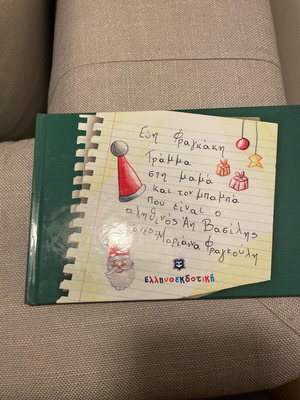 Εύη Φραγκάκη
Γράμμα
στη μαμά
και τον μπαμπά
που είναι ο
αληθινός Άη Βασίλης
Μαριάννα Φραγκούλη
ελληνοεκδοτική